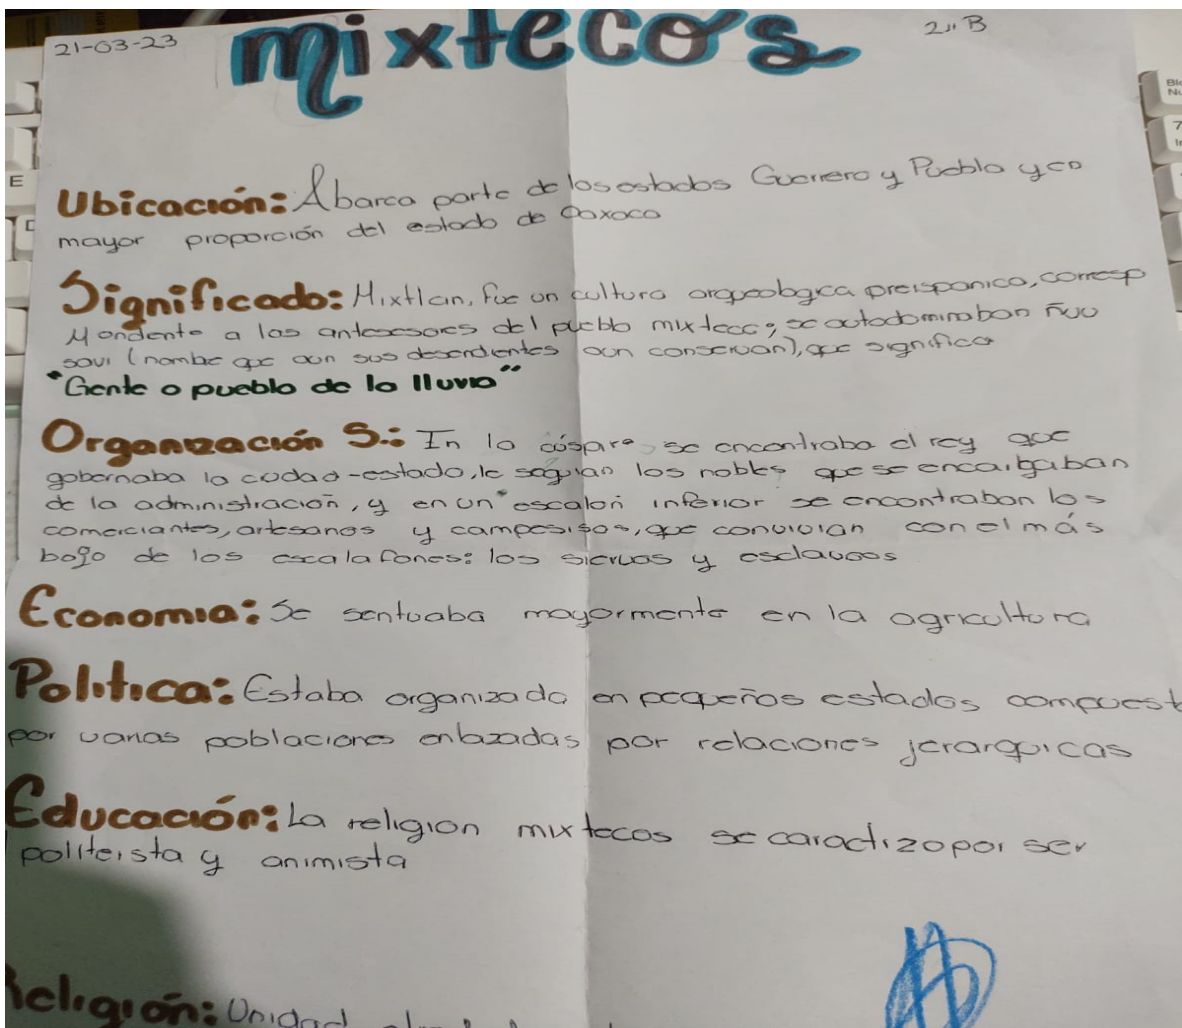 21-03-23
mixtecos
2,, B
Ubicación: Abarca parte de los estados Guerrero y Puebla y en
mayor proporción del estado de Oaxaca
Significado: Mixtlan, fue un cultura arqueologica preispanica, corresp
ondente a los antesesores del pueblo mixteco; se autodominaban ñuu
savi (nombe que aun sus desendientes aun conservan), que significa
"Gente o pueblo de la lluvia"
Organización S.: In la cúspare, se encontraba el rey que
gobernaba la ciudad-estado, le seguian los nobles que se encargaban
de la administración, y en un escalón inferior se encontraban los
comerciantes, artesanos y campesisos, que convivian con el más
bajo de los escalafones: los siervos y esclavos
Economia: Se sentuaba mayormente en la agricultura
Politica: Estaba organizada en pequeños estados compuest
por varias poblaciones enlazadas por relaciones jerarquicas
Educación: La religion mixtecos se caractizo por ser
politeista y animista
Religión: Unidad